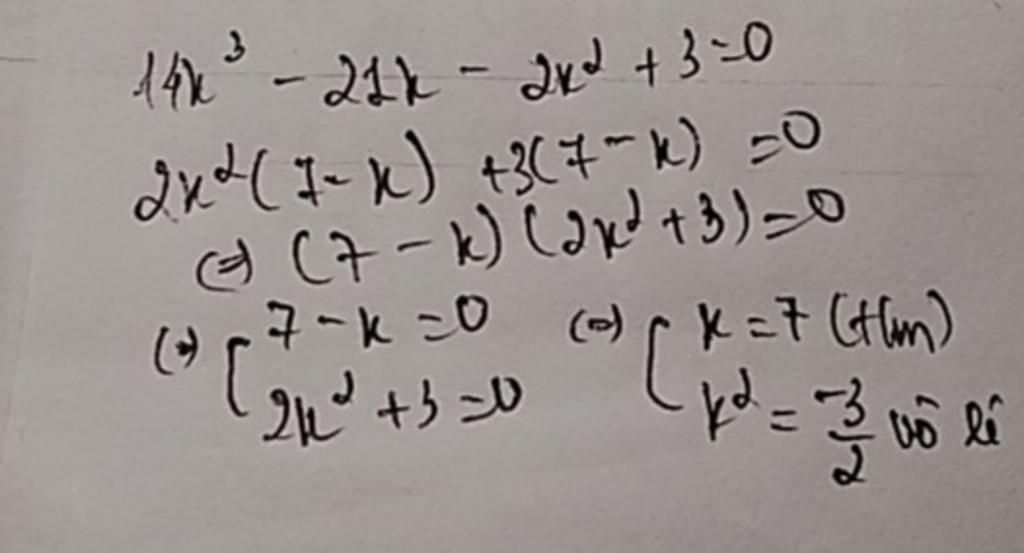 14x³ - 21x - 2x² + 3 = 0
2x²(7 - x) + 3(7 - x) = 0
(=) (7 - x)(2x² + 3) = 0
(=) [ 7 - x = 0 (=) [ x = 7 (t/m)
2x² + 3 = 0 x² = -3/2 vô lí